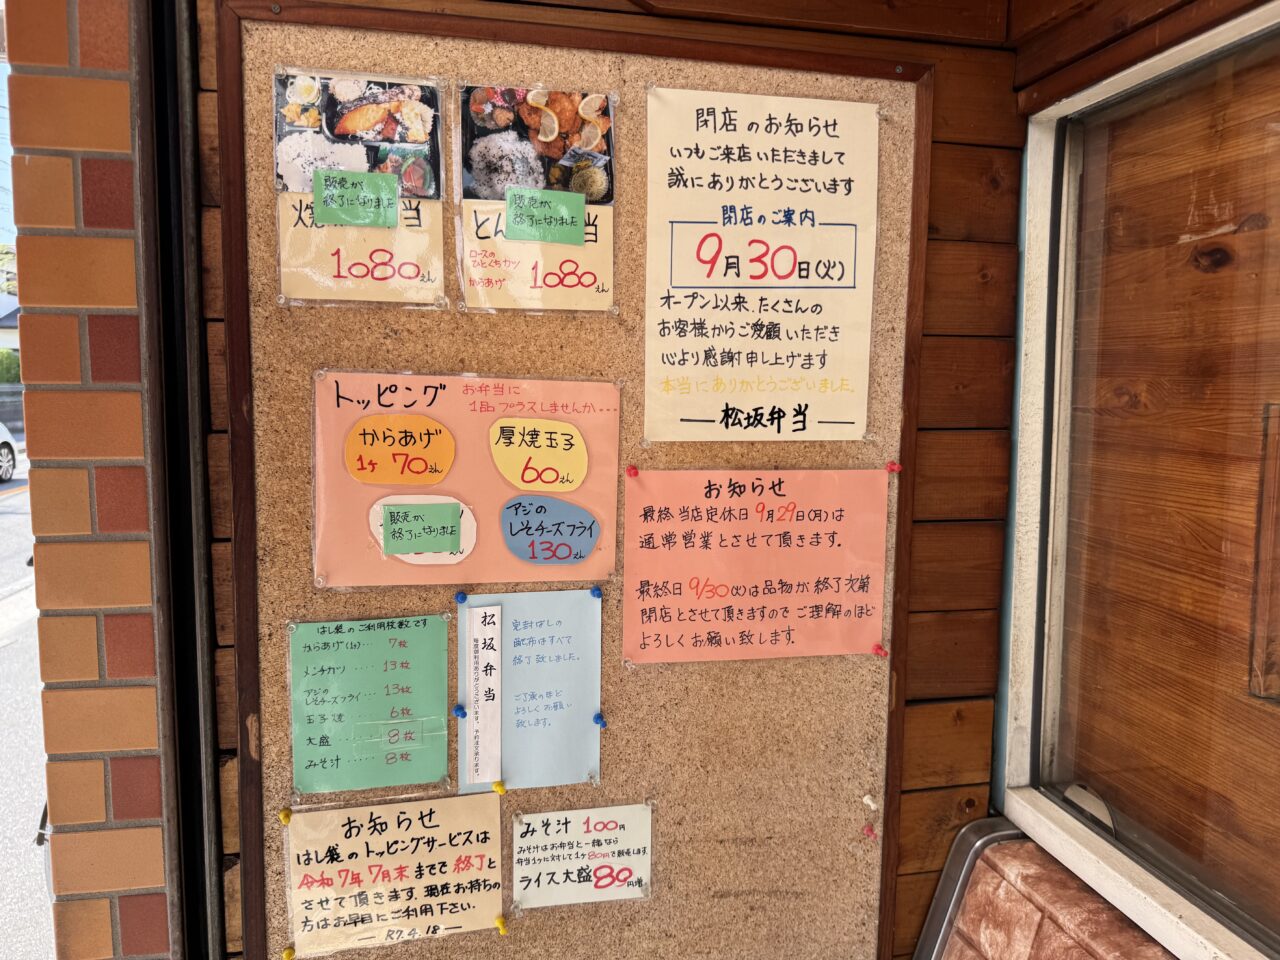 販売が
終了になりました
焼
当
1080えん
販売が
終了になりました
とん
当
ロースの
ひとくちカツ
からあげ
1080えん
閉店のお知らせ
いつもご来店いただきまして
誠にありがとうございます
閉店のご案内
9月30日(火)
オープン以来、たくさんの
お客様からご愛顧いただき
心より感謝申し上げます
本当にありがとうございました。
松坂弁当
トッピング
お弁当に
1品プラスしませんか…
からあげ
1ケ 70えん
厚焼玉子
60えん
販売が
終了になりました
えん
アジの
しそチーズフライ
130えん
お知らせ
最終当店定休日9月29日(月)は
通常営業とさせて頂きます。
最終日9/30(火)は品物が終了次第
閉店とさせて頂きますのでご理解のほど
よろしくお願い致します。
はし袋のご利用枚数です
からあげ(1ケ)… 7枚
メンチカツ… 13枚
アジの
しそチーズフライ… 13枚
玉子焼… 6枚
大盛… 8枚
みそ汁… 8枚
松坂弁当
毎度御利用ありがとうございます。予約注文承ります。
完封はしの
配布はすべて
終了致しました。
ご了承のほど
よろしくお願い
致します。
お知らせ
はし袋のトッピングサービスは
令和7年7月末までで終了と
させて頂きます。現在お持ちの
方はお早目にご利用下さい。
R7.4.18
みそ汁 100円
みそ汁はお弁当と一緒なら
弁当1ケに対して1ケ80円で販売します。
ライス大盛80円増